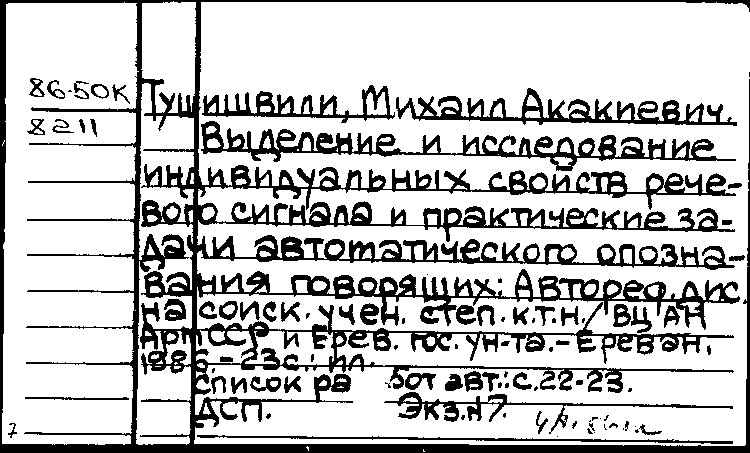 86-50К
8211
Тушишвили, Михаил Акакиевич.
Выделение и исследование
индивидуальных свойств рече-
вого сигнала и практические за-
дачи автоматического опозна-
вания говорящих: Автореф. дис.
на соиск. учен. степ. к.т.н. / ВЦ АН
АрмССР и Ерев. гос. ун-та. - Ереван,
1986. - 23с.: ил.
Список ра бот авт.: с. 22-23.
ДСП. Экз. №7.
7